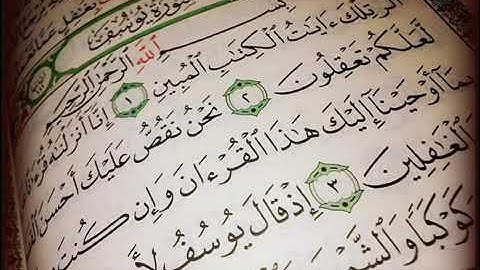 سُورَةُ يُوسُفَ
بِسْمِ ٱللَّهِ ٱلرَّحْمَٰنِ ٱلرَّحِيمِ
الٓر تِلْكَ ءَايَٰتُ ٱلْكِتَٰبِ ٱلْمُبِينِ ١ إِنَّآ أَنزَلْنَٰهُ
لَّعَلَّكُمْ تَعْقِلُونَ ٢ نَحْنُ نَقُصُّ عَلَيْكَ أَحْسَنَ
بِمَآ أَوْحَيْنَآ إِلَيْكَ هَٰذَا ٱلْقُرْءَانَ وَإِن كُنتَ
ٱلْغَٰفِلِينَ ٣ إِذْ قَالَ يُوسُفُ
كَوْكَبًا وَٱلشَّمْسَ